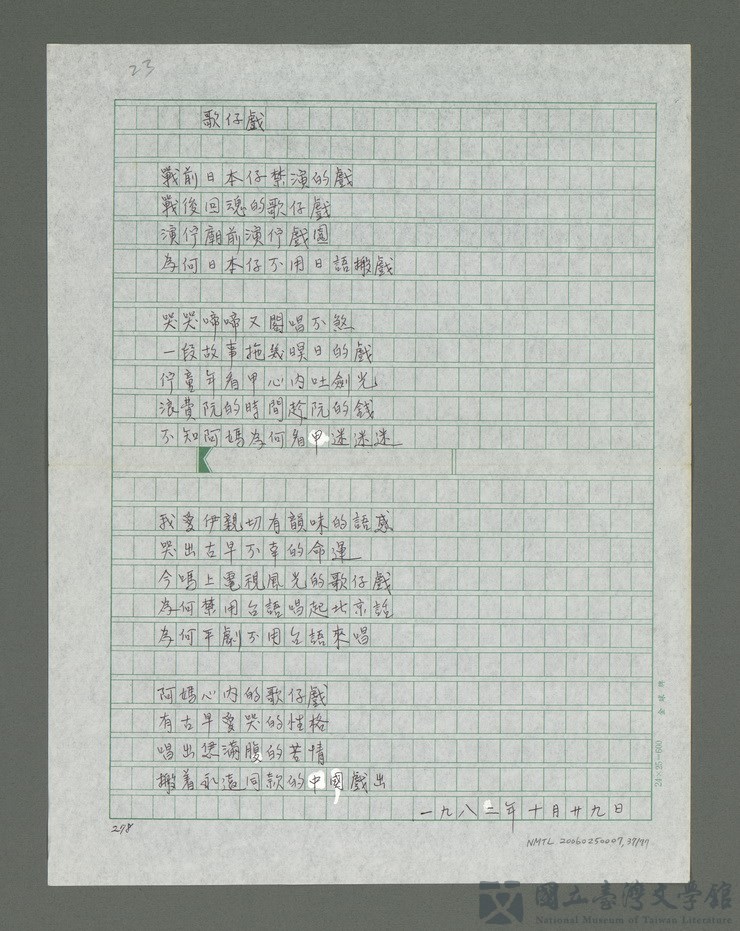 23
歌仔戲
戰前日本仔禁演的戲
戰後回魂的歌仔戲
演佇廟前演佇戲園
為何日本仔不用日語搬戲
哭哭啼啼又閣唱不煞
一段故事拖幾暝日的戲
佇童年看甲心內吐劍光
浪費阮的時間趁阮的錢
不知阿媽為何看甲迷迷迷
我愛伊親切有韻味的語感
哭出古早不幸的命運
今嗎上電視風光的歌仔戲
為何禁用台語唱起北京話
為何平劇不用台語來唱
阿媽心內的歌仔戲
有古早愛哭的性格
唱出悲滿腹的苦情
搬着永遠同款的中國戲出
一九八二年十月廿九日
278
NMTL 20060250007,37/97
24×25=600
國立臺灣文學館
National Museum of Taiwan Literature